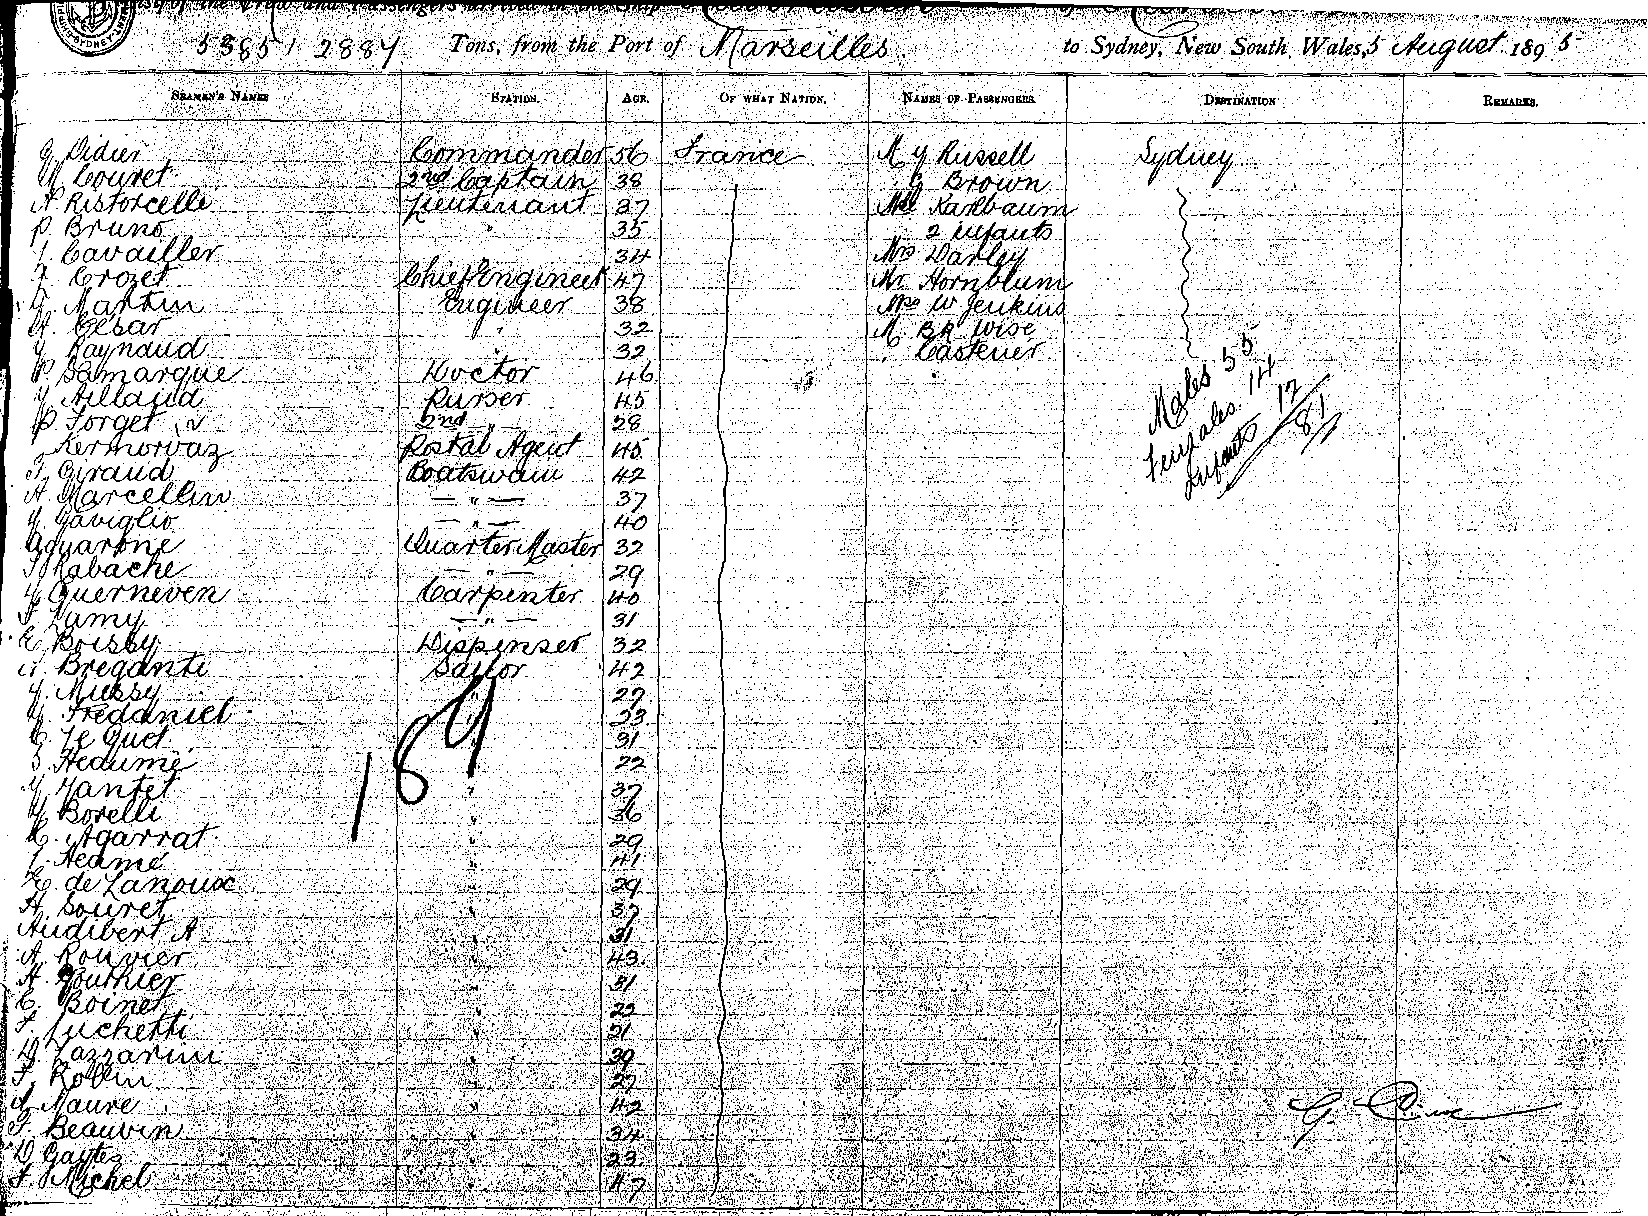 of the Crew and Passengers arrived in the Ship
5385 / 2887 Tons, from the Port of Marseilles to Sydney, New South Wales, 5 August 1895
SEAMEN'S NAMES STATION. AGE. OF WHAT NATION. NAMES OF PASSENGERS. DESTINATION REMARKS.
Didier Commander 56 France Russell Sydney
Couret 2nd Captain 38 Brown
A Ristorcelli Lieutenant 37 Karlbaum
P. Bruno " 35 2 infants
Cavailler 34 Mrs Darley
Crozet Chief Engineer 47 Mr Hornblum
Martin Engineer 38 Mrs W Jenkins
Cesar " 32 M. BR Wise
Raynaud 32 Castener
P Samarque Doctor 46
Aillaud Purser 45
P. Forget 2nd " 28
Kermorvaz Postal Agent 45
Giraud Boatswain 42
A Marcellin — " — 37
Gaviglio — " — 40
Aquarone Quarter Master 32
Rabache — " — 29
Querneven Carpenter 40
Lamy — " — 31
E Boisby Dispenser 32
Breganti Sailor 42
Mussy " 27
Fredaniel " 23
Le Guet " 31
Heaumé " 22
" 37
Borelli " 36
Agarrat " 29
Heamé " 41
de Lanoux " 29
H. Souret " 37
Audibert A " 31
A. Rouvier " 43
A. Gouthier " 51
E. Boinet "
F. Luchetti " 51
Lazzarini " 39
F. Robin " 27
Maure " 42
F. Beauvin " 34
D Gaytes " 23
F. Michel " 47
Males 55
Females 14
Infants 12
81
189